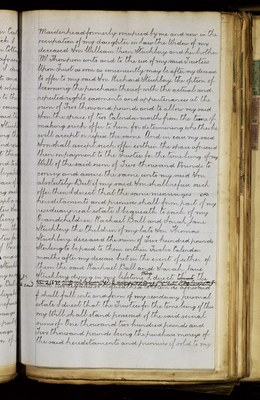 Maidenhead formerly occupied by me and now in the
occupation of my daughter in law the Widow of my
deceased son William Thorn Stuchbery and her brother
Mr Thompson unto and to the use of my said Trustees
Upon trust as soon as conveniently may be after my decease
to offer to my said son Richard Stuchbery the option of
becoming the purchaser thereof with the actual and
reputed rights easements and appurtenances at the
sum of Two thousand pounds and to allow my said
son the space of two Calendar months from the time of
making such offer to him for determining whether he
will accept or refuse the same And in case my said
son shall accept such offer within the space aforesaid
then on payment to the Trustees for the time being of my
Will of the said sum of Two thousand Pounds to
convey and assure the same unto my said son
absolutely But if my said son shall refuse such
offer then I direct that the same messuage
hereditaments and premises shall form part of my
residuary real estate I bequeath to each of my
Grandchildren Rachael Ball and Sarah Jane
Stuchbery the Children of my late son Thomas
Stuchbery deceased the sum of Two hundred pounds
Sterling to be paid to them within Twelve Calendar
months after my decease but in the event of either of
them the said Rachael Ball and Sarah Jane
Stuchbery dying in my lifetime I direct
shall fall into and form of my residuary personal
estate I direct that the Trustees for the time being of this
my Will shall stand possessed of the said several
sums of One thousand two hundred pounds and
Two thousand pounds being the purchase moneys of
the said hereditaments and premises if sold to my